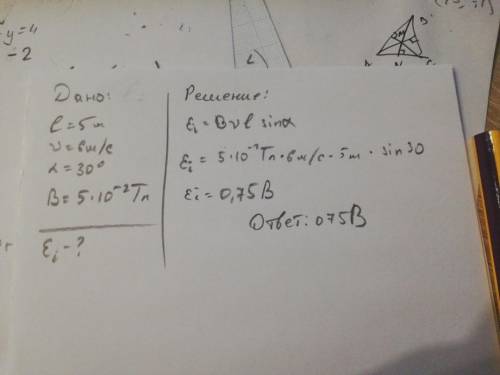 -y=4
-2
Дано:
l=5м
v=6м/с
α=30°
B=5·10⁻²Тл
Ei-?
Решение:
Ei=Bvl sinα
Ei=5·10⁻²Тл·6м/с·5м·sin30
Ei=0,75В
Ответ:075В